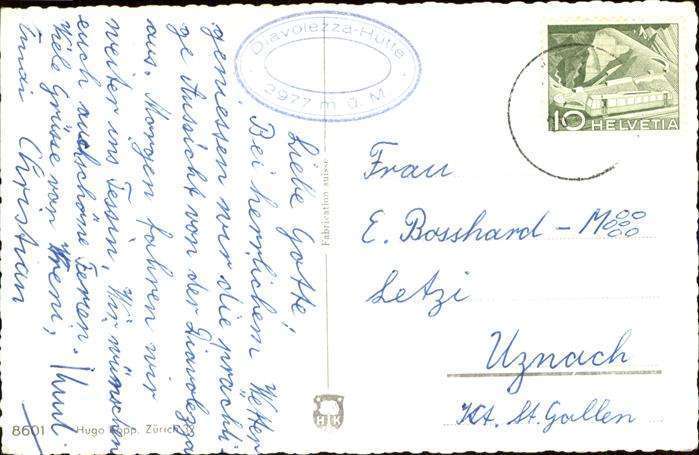 Liebe Gotte!
Bei herrlichem Wetter
geniessen wir die prächti-
ge Aussicht von der Diavolezza
aus. Morgen fahren wir
weiter ins Tessin. Wir wünschen
euch auch schöne Ferien.
Viele Grüsse von Vreni,
Christian
Diavolezza-Hütte
2977 m ü. M.
10 HELVETIA
Fabrication suisse
Frau
E. Bosshard-M
Letzi
Uznach
Kt. St. Gallen
HK
8601 Hugo Kopp, Zürich